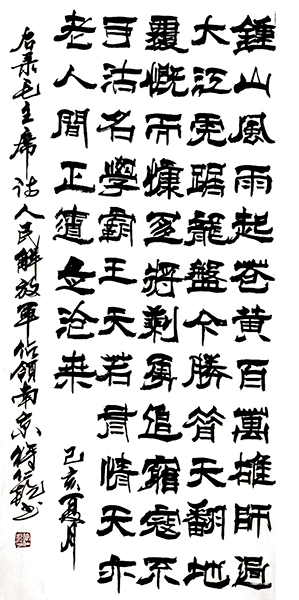 鍾山風雨起蒼黄百萬雄師過
大江虎踞龍盤今勝昔天翻地
覆慨而慷宜將剩勇追窮寇不
可沽名學霸王天若有情天亦
老人間正道是滄桑
己亥夏月
右录毛主席诗人民解放軍佔領南京